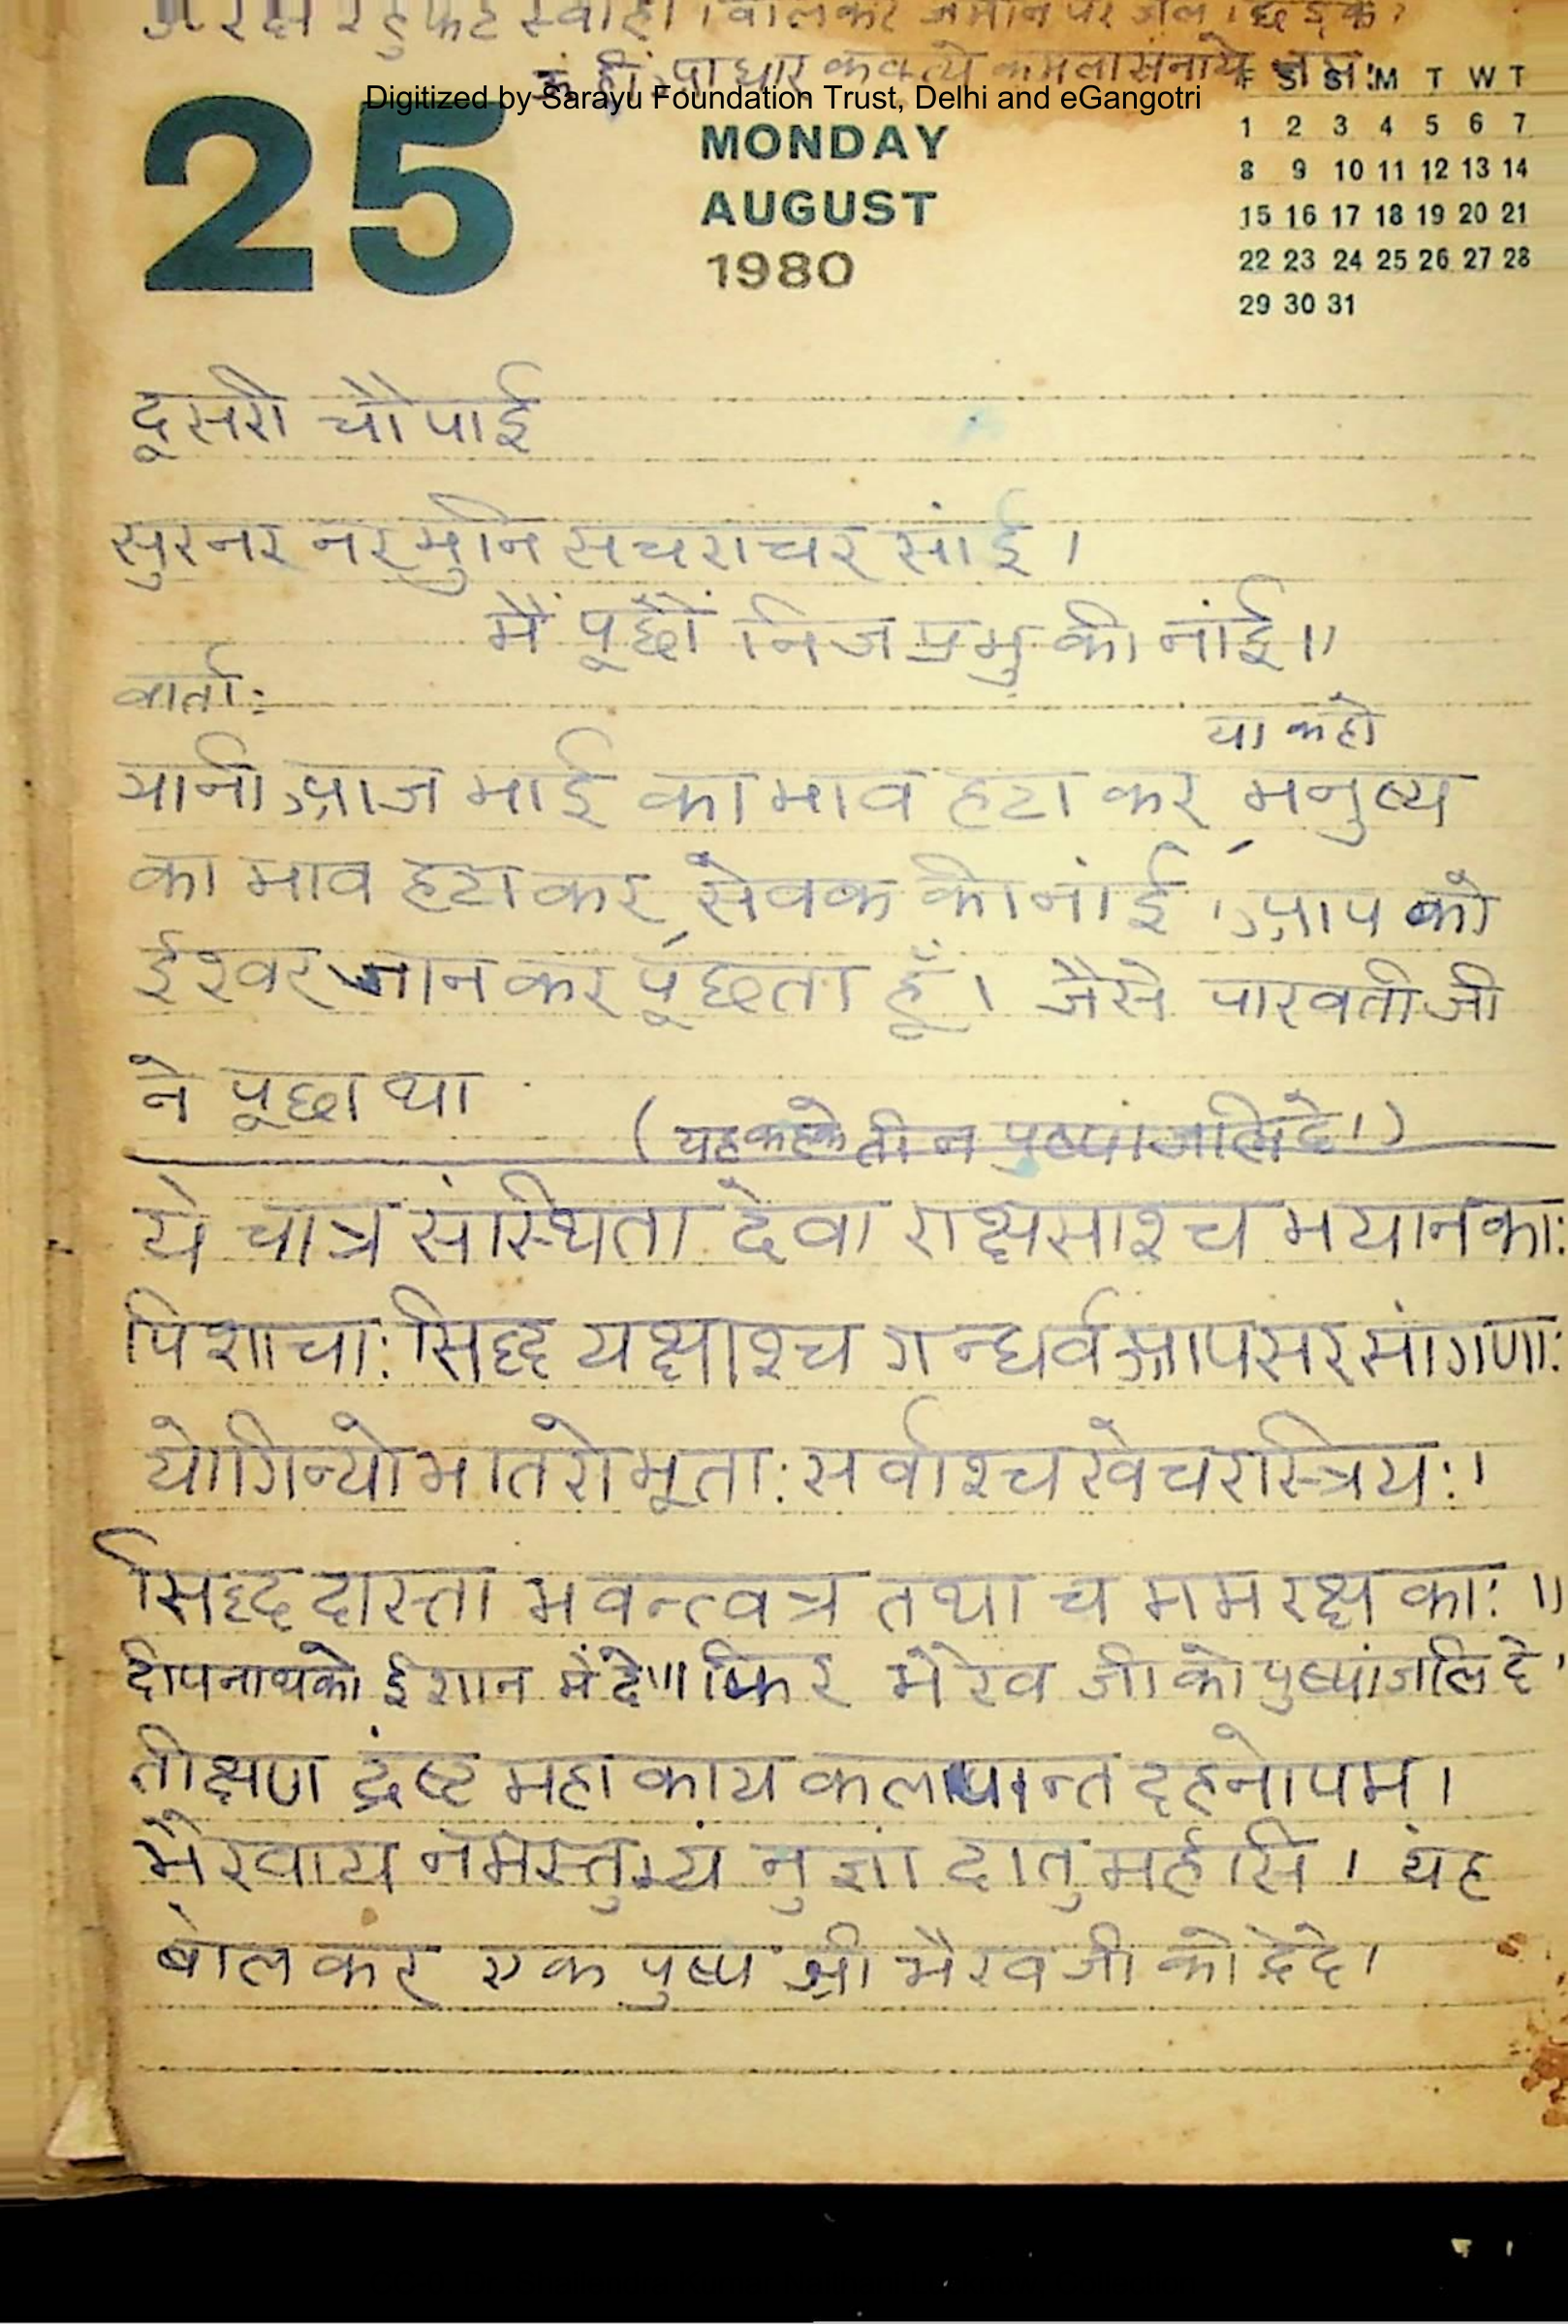 रक्ष रक्ष हुं फट स्वाहा । बोलकर जमीन पर जल छिड़के ।
ॐ ह्रीं आधार कमलासनाये नमः
Digitized by Sarayu Foundation Trust, Delhi and eGangotri
25
MONDAY
AUGUST
1980
F S S M T W T
1 2 3 4 5 6 7
8 9 10 11 12 13 14
15 16 17 18 19 20 21
22 23 24 25 26 27 28
29 30 31
दूसरी चौपाई
सुरनर नर मुनि सचराचर सांई ।
मैं पूछौं निज प्रभु की नांई ॥
वार्ता:
या कहो
यानी आज भाई का भाव हटा कर मनुष्य
का भाव हटा कर, सेवक की नांई, आप को
ईश्वर जान कर पूछता हूँ । जैसे पारवती जी
ने पूछा था
( यह कहके तीन पुष्पांजलि दे । )
ये चात्र संस्थिता देवा राक्षसाश्च भयानकाः
पिशाचाः सिद्ध यक्षाश्च गन्धर्व आपसरसांगणाः
योगिन्यो मातरो भूताः सर्वाश्च खेचरास्त्रियः ।
सिद्धदास्ता भवन्त्वत्र तथा च मम रक्षकाः ॥
दीपनाथ को ईशान में दे ॥ फिर भैरव जी को पुष्पांजलि दे ।
तीक्षण द्रंष्ट महाकाय कलपान्त दहनोपम ।
भैरवाय नमस्तुभ्यं नुज्ञां दातु मर्हसि । यह
बोल कर एक पुष्प श्री भैरव जी को दे दे ।